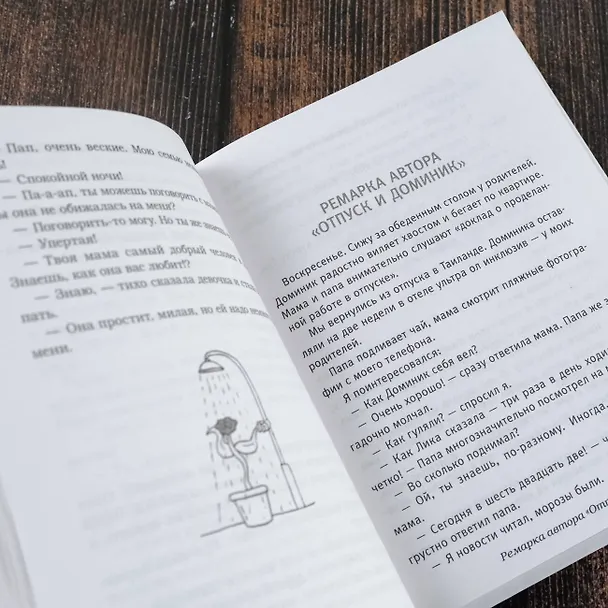 Пап, очень веские. Мою семью
— Спокойной ночи!
— Па-а-ап, ты можешь поговорить с
она не обижалась на меня?
— Поговорить-то могу. Но ты же
— Упертая!
— Твоя мама самый добрый человек
Знаешь, как она вас любит!?
— Знаю, — тихо сказала девочка и
пать.
— Она простит, милая, но ей надо
мени.
РЕМАРКА АВТОРА
«ОТПУСК И ДОМИНИК»
Воскресенье. Сижу за обеденным столом у родителей.
Доминик радостно виляет хвостом и бегает по квартире.
Мама и папа внимательно слушают «доклад о проделан-
ной работе в отпуске».
Мы вернулись из отпуска в Таиланде. Доминика остав-
ляли на две недели в отеле ультра ол инклюзив — у моих
родителей.
Папа подливает чай, мама смотрит пляжные фотогра-
фии с моего телефона.
Я поинтересовался:
— Как Доминик себя вел?
— Очень хорошо! — сразу ответила мама. Папа же
гадочно молчал.
— Как гуляли? — спросил я.
— Как Лика сказала — три раза в день
четко! — Папа многозначительно посмотрел на
— Во сколько поднимал?
— Ой, ты знаешь, по-разному. Иногда,
мама.
— Сегодня в шесть двадцать две! —
грустно ответил папа.
— Я новости читал, морозы были.
Ремарка автора «Отп